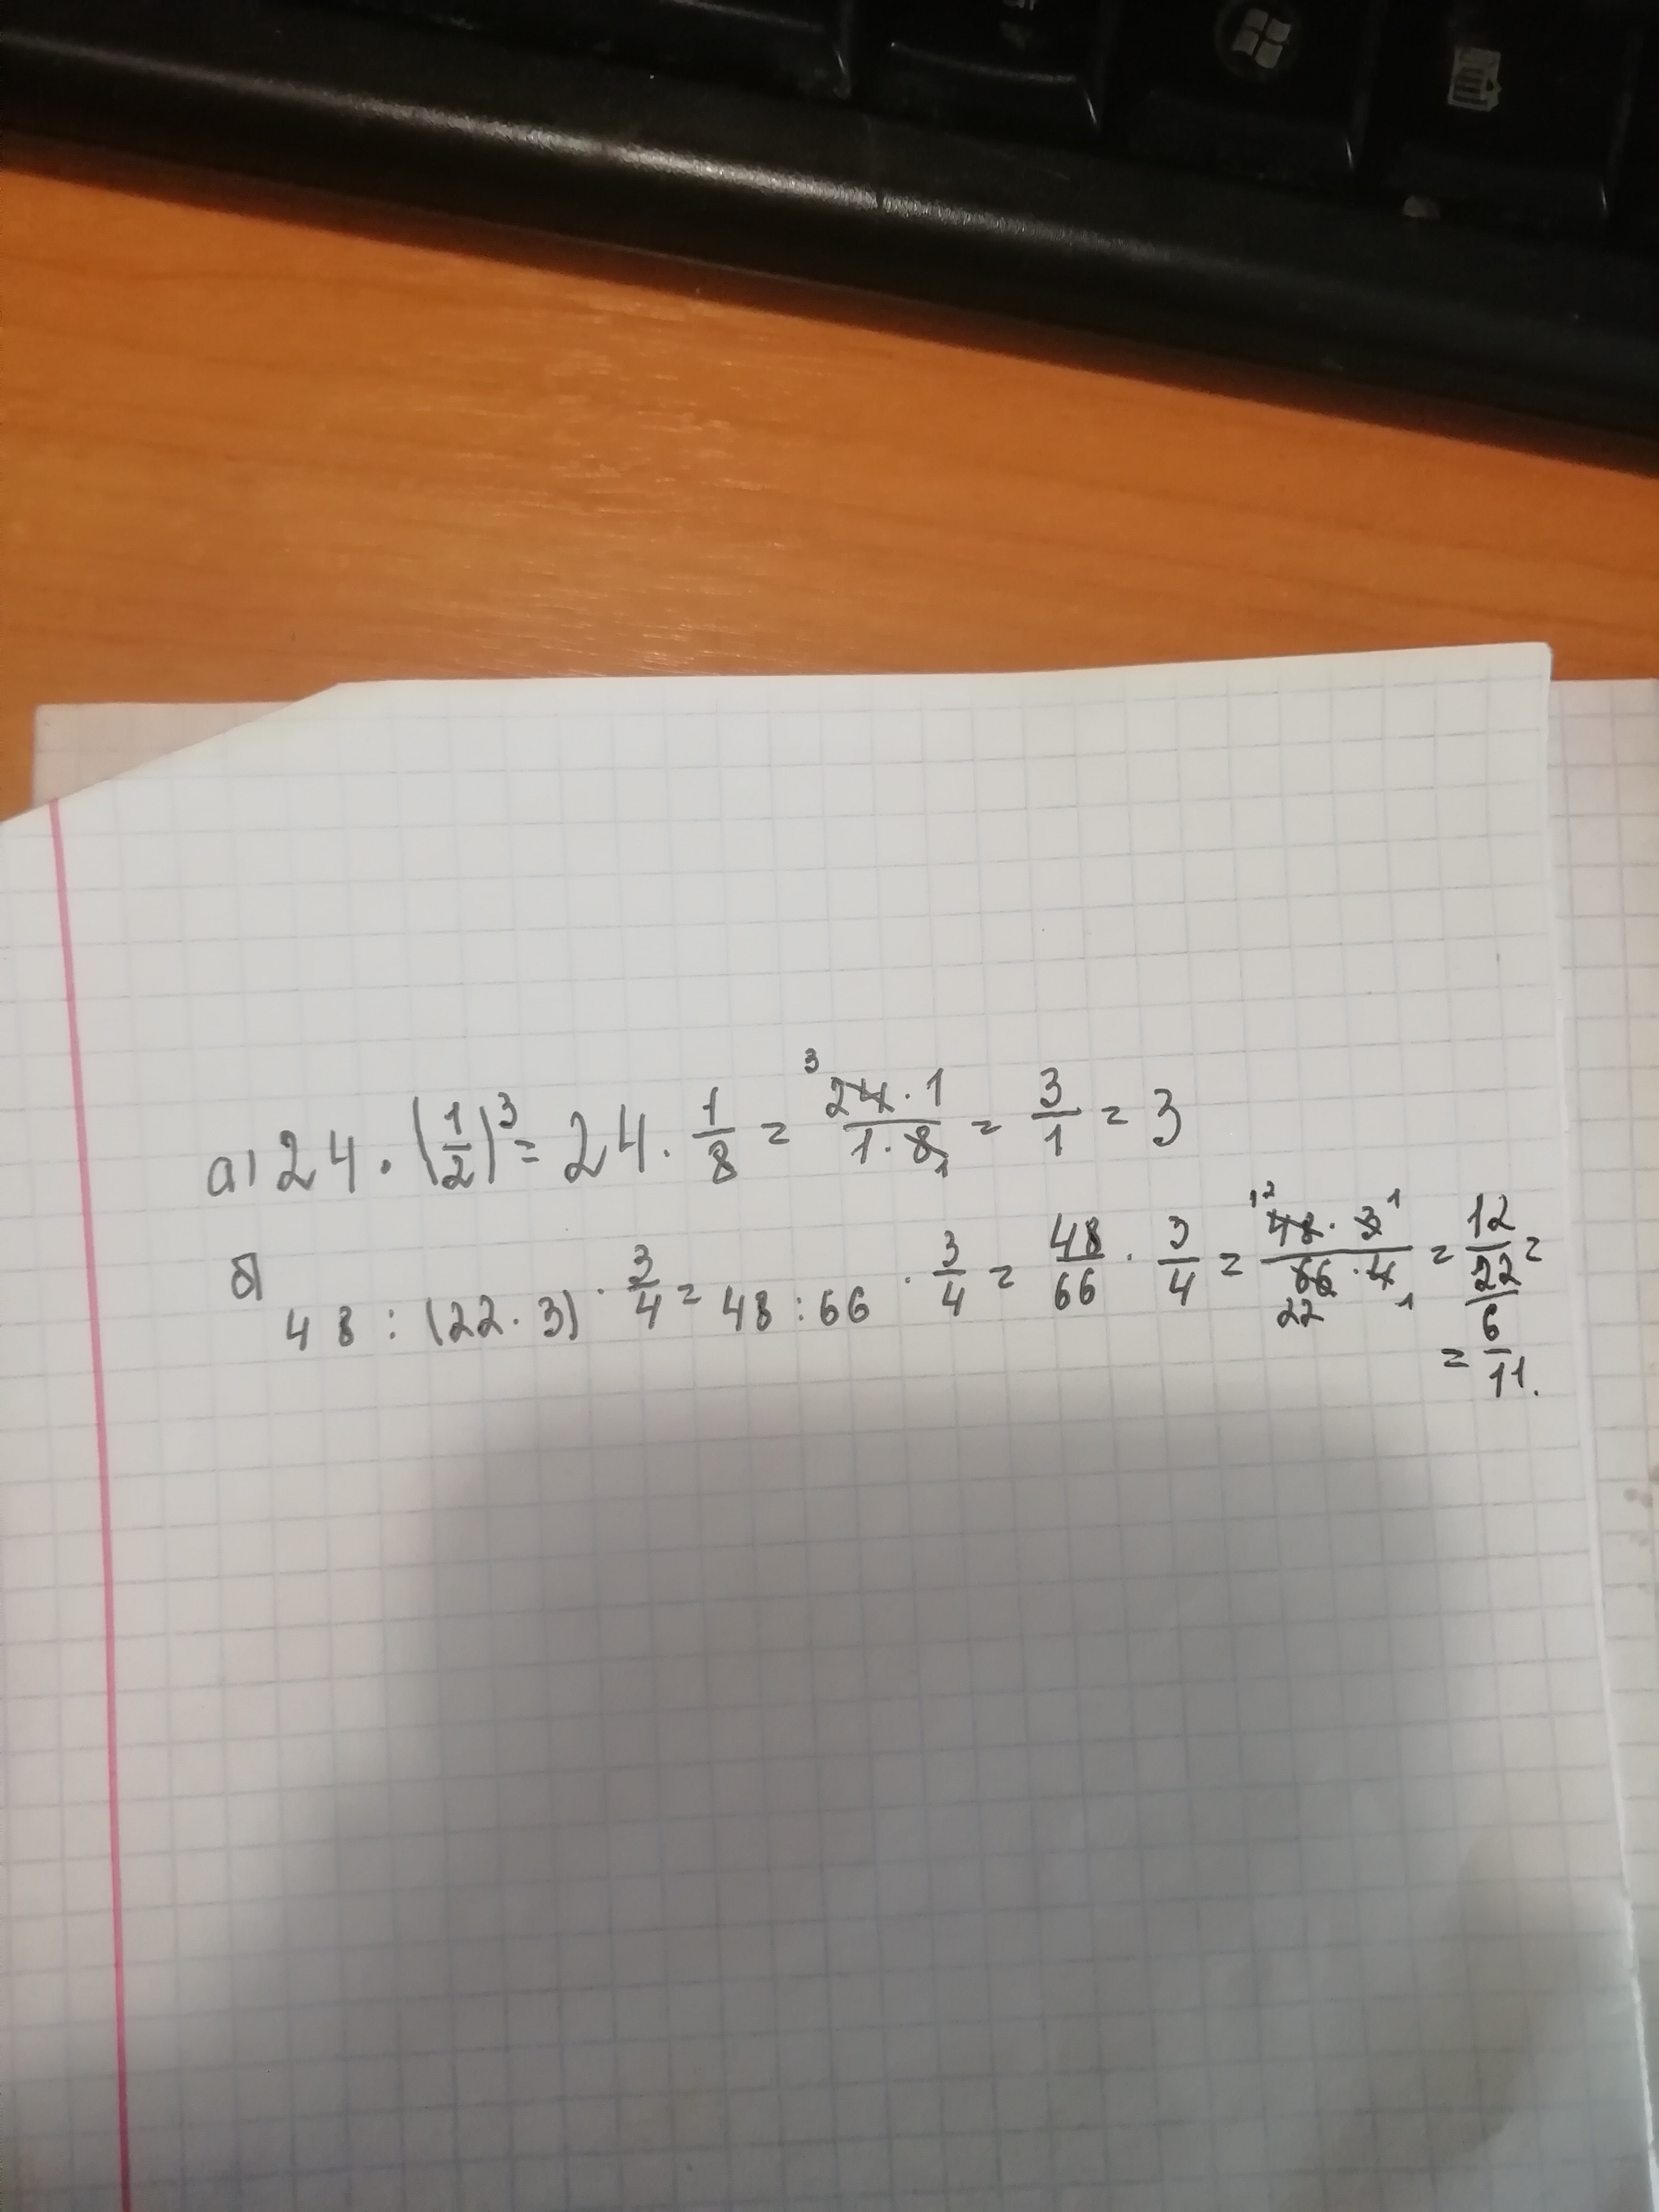 а) 24 · (1/2)^3 = 24 · 1/8 = 3 24 · 1 / 1 · 8 1 = 3/1 = 3
б) 48 : (22 · 3) · 3/4 = 48 : 66 · 3/4 = 48/66 · 3/4 = 12 48 · 3 1 / 66 22 · 4 1 = 12/22 =
= 6/11.